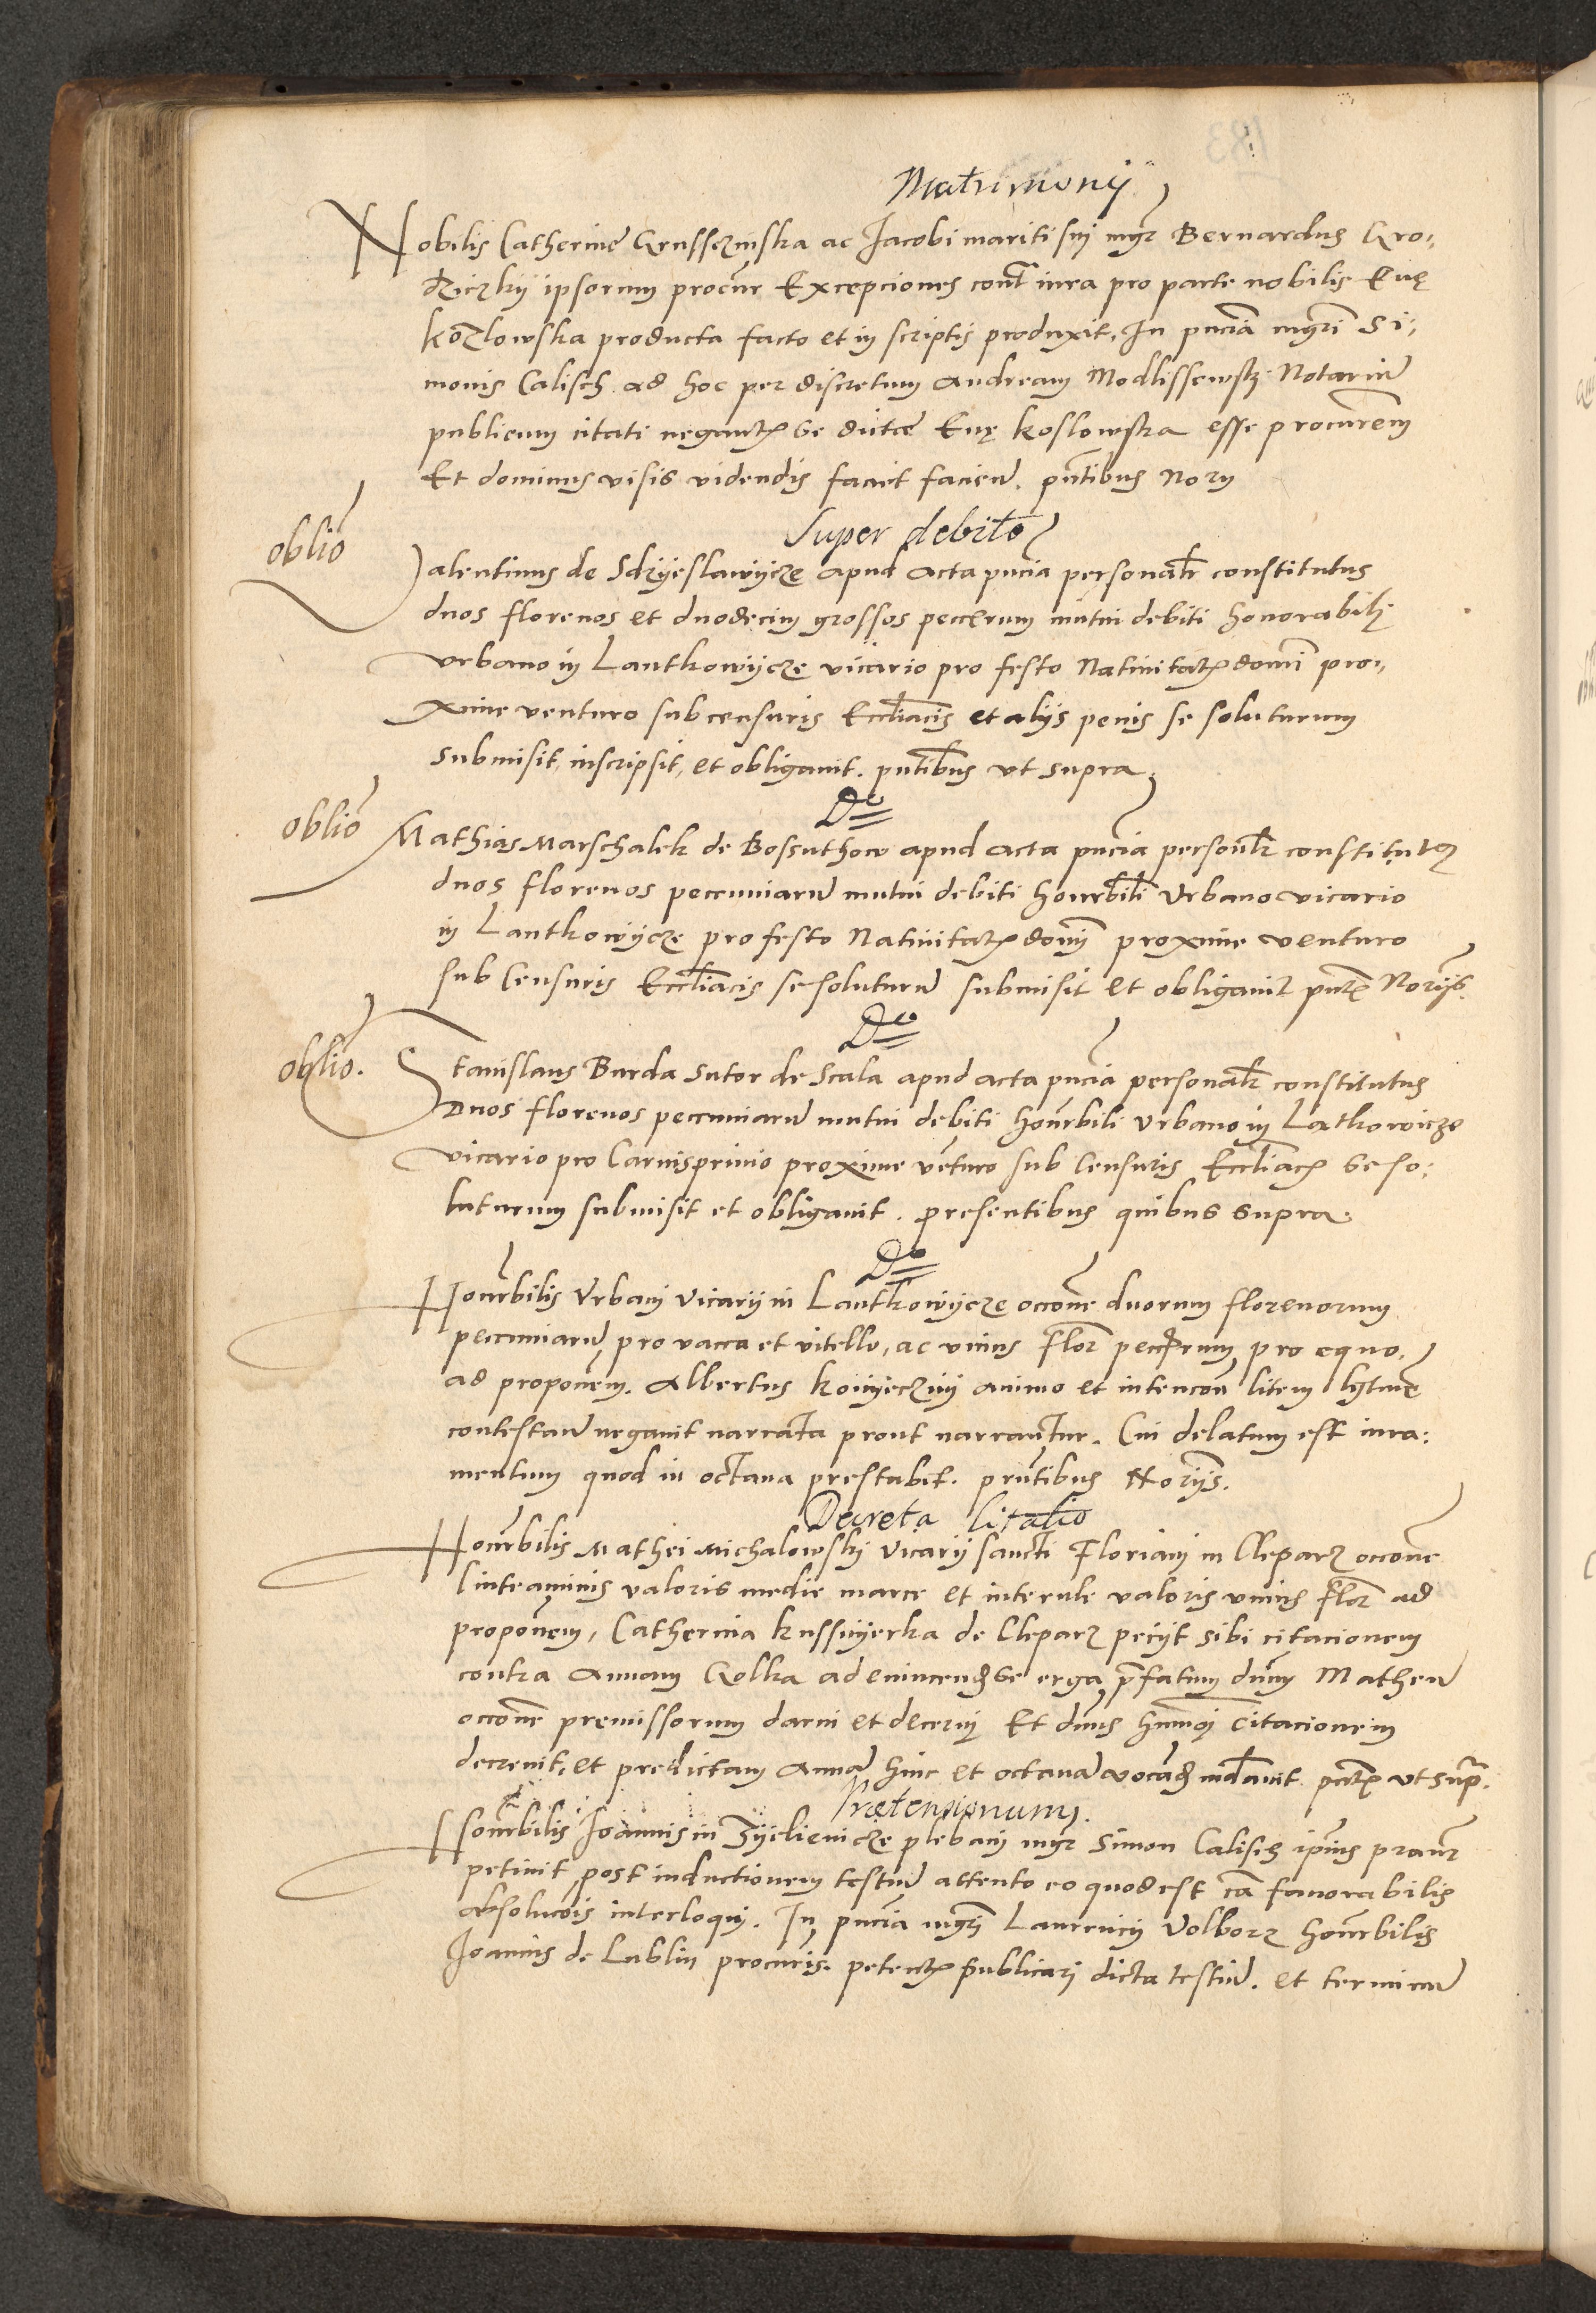 Matrimonij
Nobilis Catherine Grussczinska ac Jacobi mariti sui mgr Bernardus Gro-
dziczky ipsorum procur Excepciones cont iura pro parte nobilis Euę
kozlowska producta facto et in scriptis produxit, In pncia mgri Si-
monis Calisch ad hoc per discretum Andream Modlissewsk Notariu
publicum citati negantis se dicte Euę koslowska esse procurem
Et dominus visis videndis faciet faciend. pntibus Norijs
Super debito
oblio
Valentinus de Sdzyeslawycze apud Acta pncia personalr constitutus
duos florenos et duodecim grossos peccrum mutui debiti honorabili
Urbano in Lantkowycze vicario pro festo Natiuitatis domi pro-
xime venturo sub censuris Eccliacis et alijs penis se soluturum
submisit, inscripsit, et obligauit. pntibus ut supra.
Do
oblio
Mathias Marschalek de Bossuthow apud Acta pncia personlr constitutus
duos florenos pecuniaru mutui debiti honrbili Urbano vicario
in Lantkowycze pro festo Natiuitatis domi proxime venturo
sub Censuris Eccliacis se soluturu submisit et obligauit pntibus Norijs.
Do
oblio.
Stanislaus Burda Sutor de Scala apud acta pncia personalr constitutus
Duos florenos pecuniaru mutui debiti honrbili Urbano in Latkowicze
vicario pro Carnispriuio proxime venturo sub Censuris Eccliacis se so-
luturum submisit et obligauit. presentibus quibus supra.
Do
Honrbilis Urbani vicarij in Lantkowycze occone duorum florenorum
pecuniaru pro vacca et vitello, ac vnius flor peccrum pro equo.
ad proponem. Albertus konyeczny animo et intencon litem lgtime
contestan negauit narrata prout narrantur. Cui delatum est iura-
mentum quod in octaua prestabit. pntibus Norijs.
Decreta Citatio
Honrbilis Mathei Michalowsky vicarij sancti Floriani in Cleparz occone
linteaminis valoris medie marce et interule valoris vnius flor ad
proponem, Catherina kussnyerka de Cleparz pecijt sibi citacionem
contra Annam Golka ad euincend se erga pfatum dnum Matheu
occone premissorum darui et decerni Et dnus hmoi citacionem
decreuit, et predictam Anna hinc et octaua vocand mdauit pntibus ut supr.
Prætensionum.
Honrbilis Joannis in Zyelienicze plebani mgr Simon Calisch ipius pcur
petiuit, post inductionem testiu attento eo quod est ca fauorabilis
absolucois interloqui. In pncia mgri Laurencij Volborz honrbilis
Joannis de Lublin procuris petentis publicari dicta testiu. et terminu